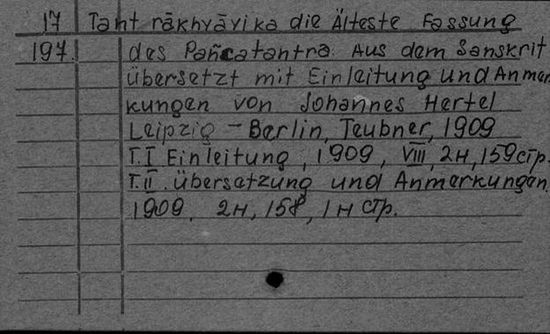 17 Tant rākhyāyika die Älteste Fassung
197. des Pañcatantra. Aus dem Sanskrit
übersetzt mit Einleitung und Anmer-
kungen von Johannes Hertel
Leipzig – Berlin, Teubner, 1909
T.I Einleitung, 1909, VIII, 2н, 159 стр.
T.II. Übersatzung und Anmerkungen,
1909, 2н, 158, 1н стр.